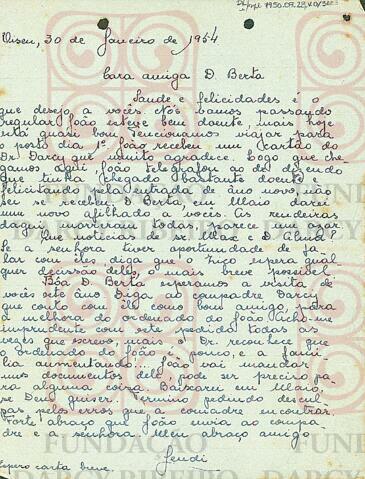 Viseu, 30 de Janeiro de 1954
Cara amiga D. Berta
Saude e felicidades é o
que desejo a vocês. Nós vamos passando
regular. João esteve bem doente, mais hoje
está quasi bom. Tencionamos viajar para
o posto dia 1º João recebeu um cartão do
Dr. Darcy que muito agradece. Logo que che-
gamos aqui, João telegrafou ao del dizendo
que tinha chegado bastante doente e
felicitando pela entrada de ano novo, não
sei se recebeu. D. Berta, em Maio darei
um novo afilhado a vocês. As rendeiras
daqui morreram todas, parece que azar.
Que noticias dá se Max e D. Cleuide?
Se a senhora tiver oportunidade de fa-
lar com eles diga que o espera qual
quer decissão dele, mais breve possivel.
Bôa D. Berta esperamos a visita de
vocês este ano. Diga ao compadre Darcy
que conto com ele como bom amigo, para
a melhora do ordenado do João. Acho-me
imprudente com este pedido todas as
vezes que escrevo, mais o Dr. reconhece que
o ordenado do João é pouco, e a fami-
lia aumentando. João vai mandar
uns documentos dele, pode ser preciso pa-
ra alguma coisa. Baixarei em Maio,
se Deus quiser. Termino pedindo descul-
pas pelos erros que a comadre encontrar.
Forte abraço que João envia ao compa-
dre e a senhora. Meu abraço amigo
Espero carta breve.
FUNDAÇÃO
DARCY RIBEIRO